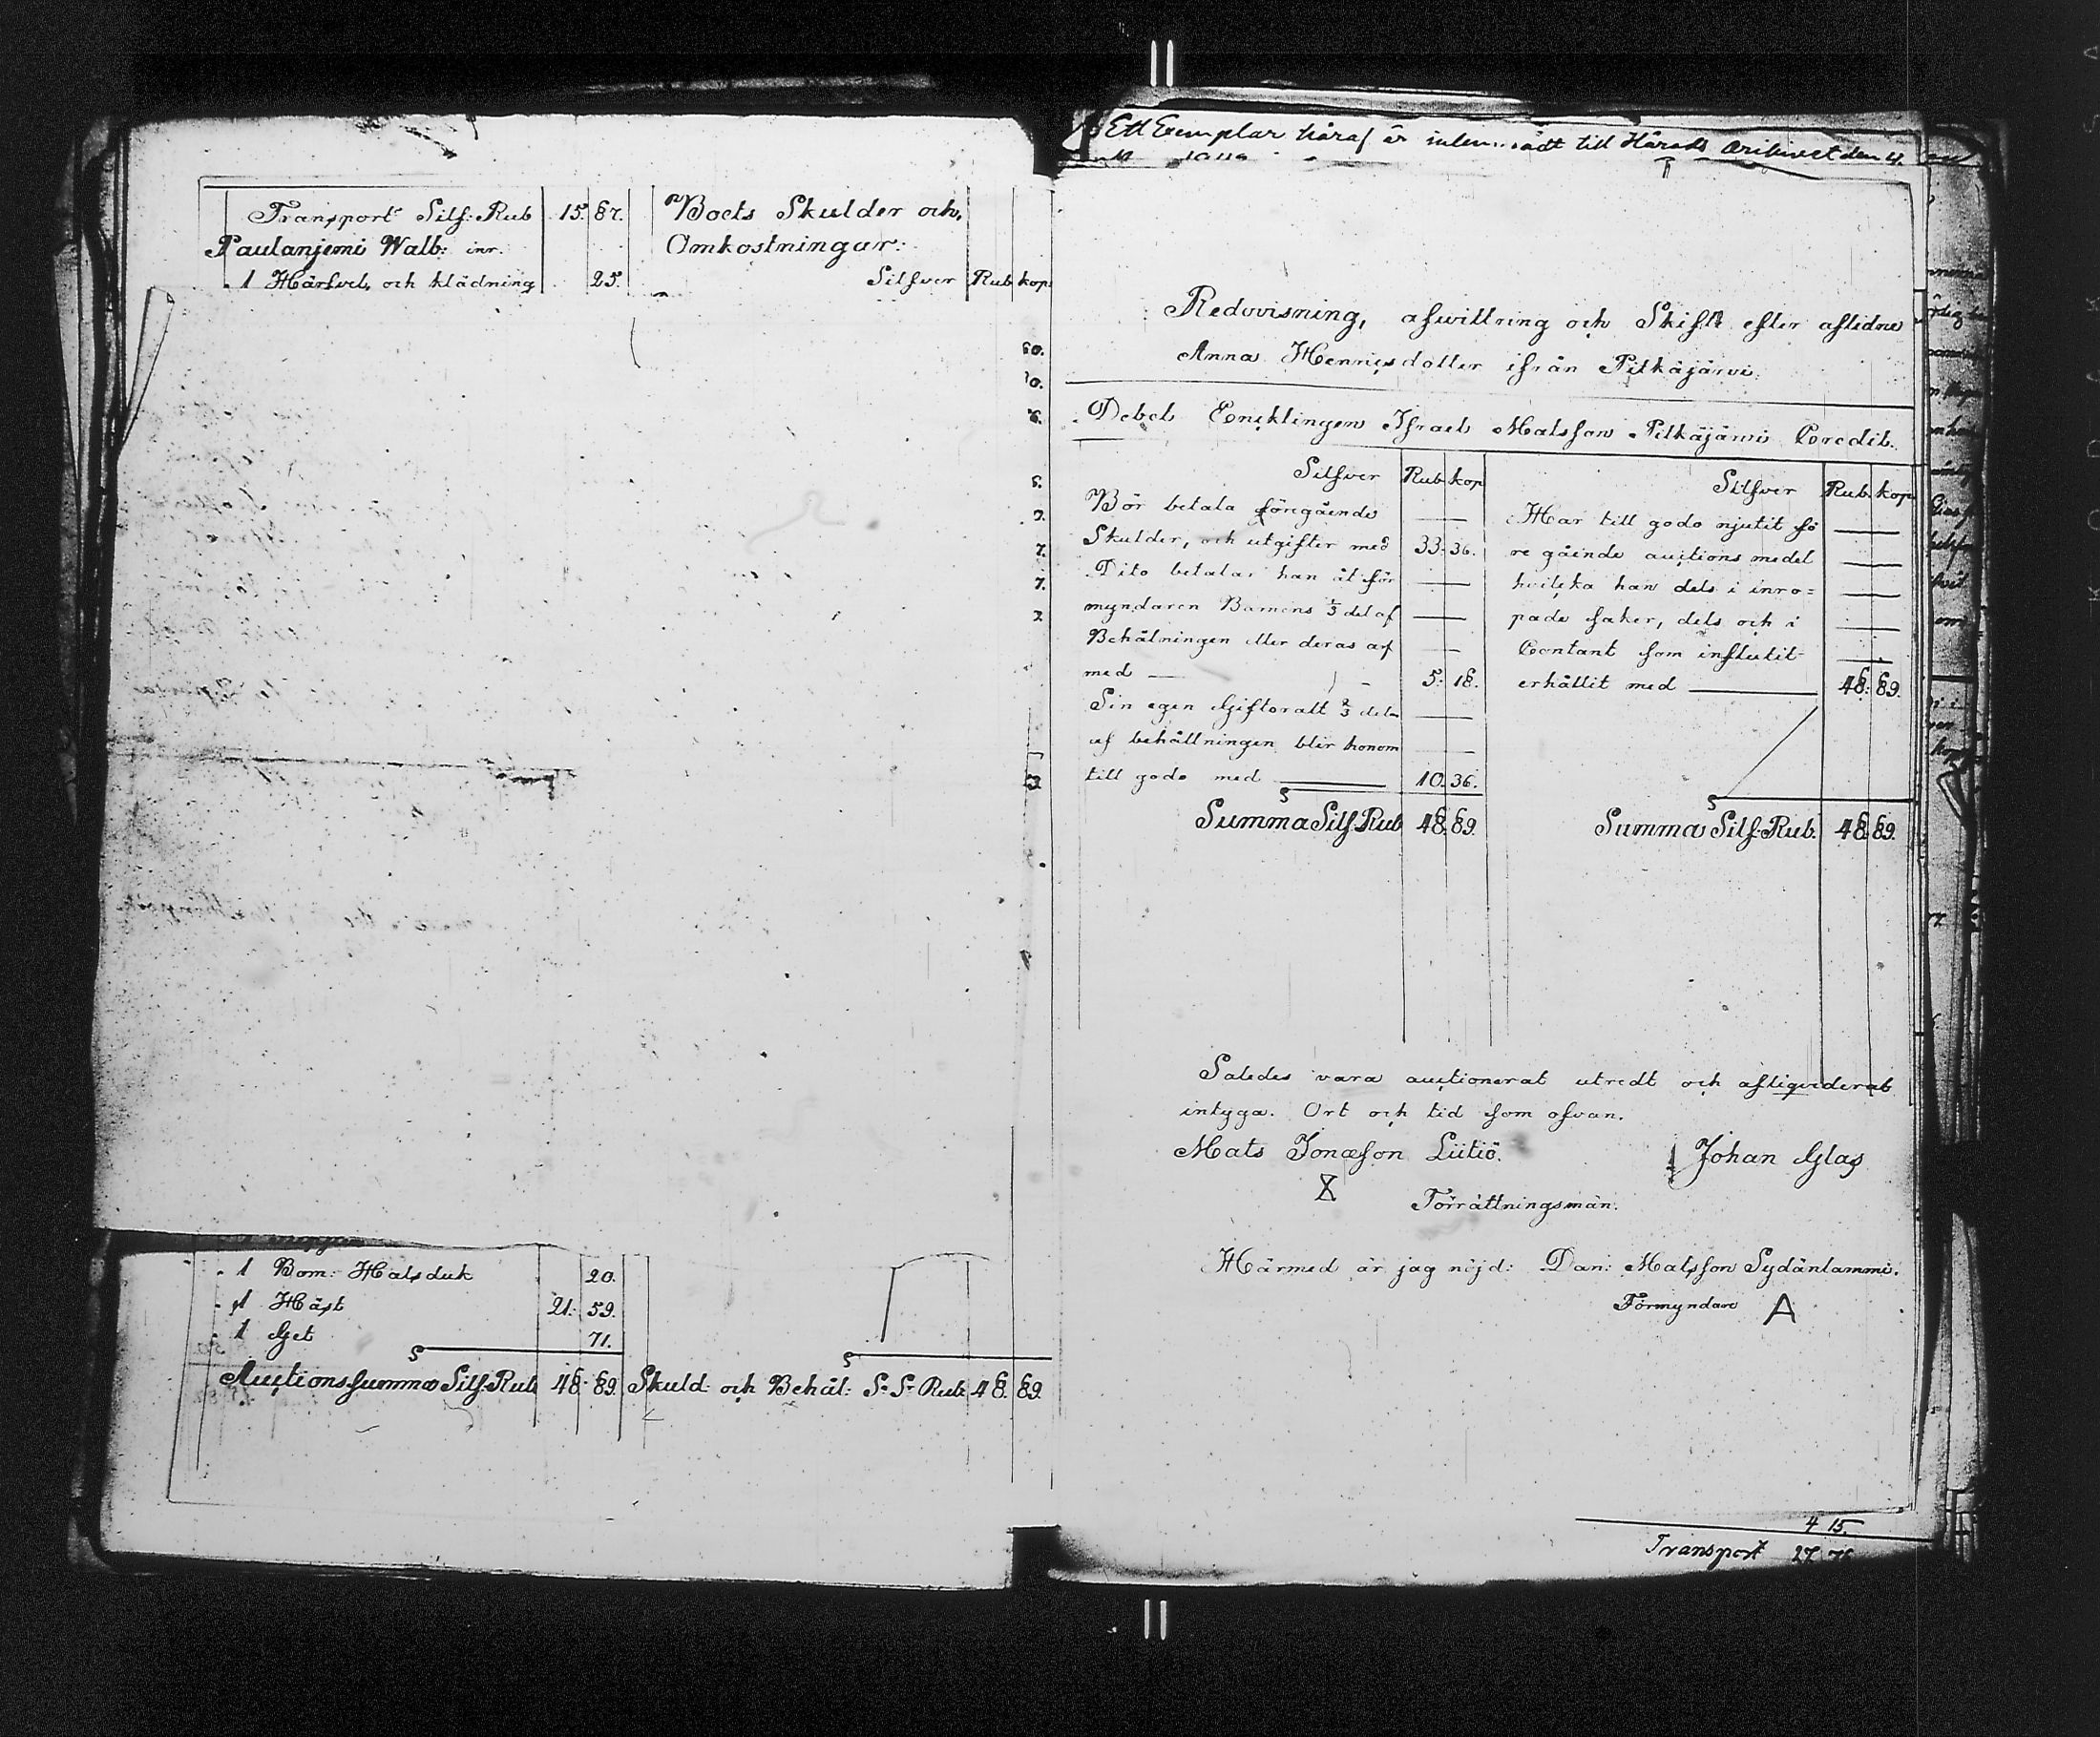 Transport Silf: Rub 15. 87.
Paulanjemi Walb: inr.
1 Härfvel, och klädning 25.
Boets Skulder och,
Omkostningar:
Silfver Rub kop
1 Bom: Halsduk 20.
1 Häst 21. 59.
1 Get 71.
Auctions summa Silf: Rub 48. 89.
Skuld: och Behål: S: S: Rub: 48. 89.
Ett Exemplar häraf är till Härads Arikivet den 4.
Redovisning, afwittring och Skifte efter aflidne
Anna Henricsdotter ifrån Pitkäjärvi.
Debet Encklingen Israel Matsson Pitkäjärvi Credit.
Silfver Rub kop
Bör betala föregående
Skulder, och utgifter med 33. 36.
Dito betalar han åt för
myndaren Barnens 1/3 del af
Behålningen eller deras arf
med 5. 18.
Sin egen Giftoratt 2/3 del
af behållningen blir honom
till godo med 10. 36.
Summa Silf. Rub 48. 89.
Silfver Rub. kop
Har till godo njutit fö
re gående auctions medel
hvilka han dels i inro=
pade saker, dels och i
Contant som influtit
erhållit med 48. 89.
Summa Silf: Rub. 48. 89.
Saledes vara auctionerat utredt och afliqviderat
intyga. Ort och tid som ofvan.
Mats Jonæson Liitiö. Johan Glas
X
Förrättningsmän.
Härmed är jag nöjd: Dan: Matsson Sydänlammi.
Förmyndare A
4 15.
Transport